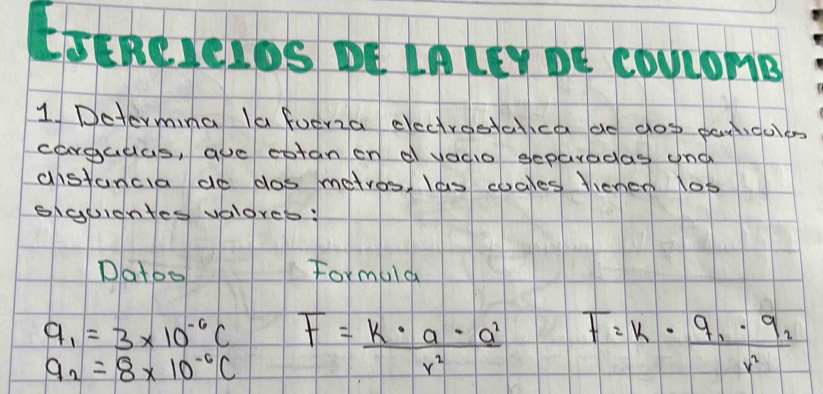 EJERCICIOS DE LA LEY DE COULOMB
1. Determina la fuerza electrostatica de dos particulas
cargadas, que estan en el vacio separadas una
distancia de dos metros, las cuales tienen los
siguientes valores:
Datos Formula
q₁ = 3 x 10⁻⁶ C F = K · q · q² / r² F = K · q₁ · q₂ / r²
q₂ = 8 x 10⁻⁶ C